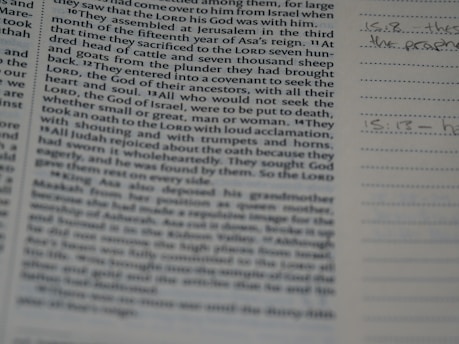 s and
Mare-
took
ithah
and
to the
our
we
are
inst
settled among them, for large
had come over to him from Israel when
they saw that the LORD his God was with him.
¹⁰They assembled at Jerusalem in the third
month of the fifteenth year of Asa's reign. ¹¹At
that time they sacrificed to the LORD seven hun-
dred head of cattle and seven thousand sheep
and goats from the plunder they had brought
back. ¹²They entered into a covenant to seek the
LORD, the God of their ancestors, with all their
heart and soul. ¹³All who would not seek the
LORD, the God of Israel, were to be put to death,
whether small or great, man or woman. ¹⁴They
took an oath to the LORD with loud acclamation,
with shouting and with trumpets and horns.
¹⁵All Judah rejoiced about the oath because they
had sworn it wholeheartedly. They sought God
eagerly, and he was found by them. So the LORD
gave them rest on every side.
¹⁶King Asa also deposed his grandmother
Maakah from her position as queen mother,
because she had made a repulsive image for the
worship of Asherah. Asa cut it down, broke it up
and burned it in the Kidron Valley. ¹⁷Although
he did not remove the high places from Israel,
Asa's heart was fully committed to the LORD all
his life. ¹⁸He brought into the temple of God the
silver and gold and the articles that he and his
father had dedicated.
¹⁹There was no more war until the thirty-fifth
year of Asa's reign.
15:8
the prophe
15:13 –